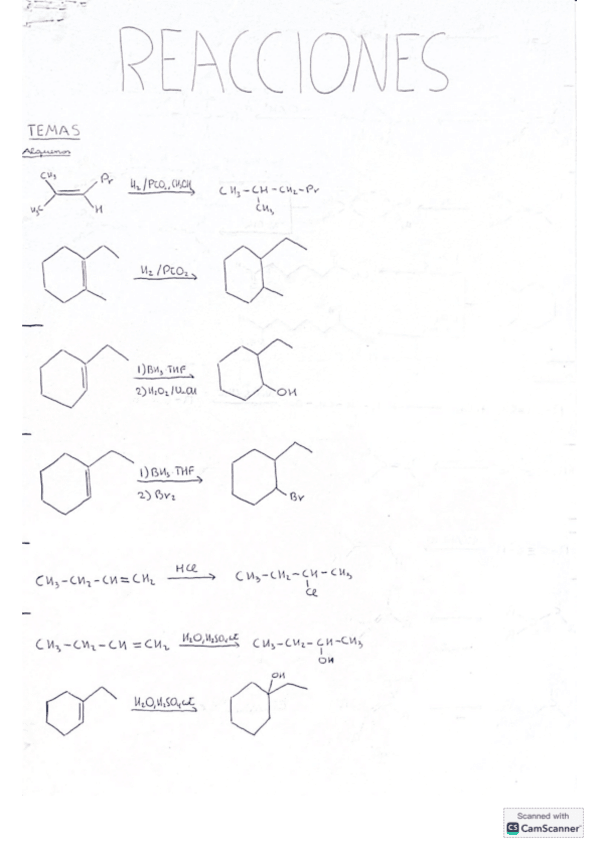 REACCIONES
TEMAS
Alquenos
CH₃ Pr H₂/PtO₂, CH₃OH CH₃-CH-CH₂-Pr
H₃C H CH₃
H₂/PtO₂
1) BH₃ THF
2) H₂O₂/NaOH OH
1) BH₃ THF
2) Br₂ Br
CH₃-CH₂-CH=CH₂ HCl CH₃-CH₂-CH-CH₃
Cl
CH₃-CH₂-CH=CH₂ H₂O, H₂SO₄ cat CH₃-CH₂-CH-CH₃
OH
OH
H₂O, H₂SO₄ cat
Scanned with
CS CamScanner